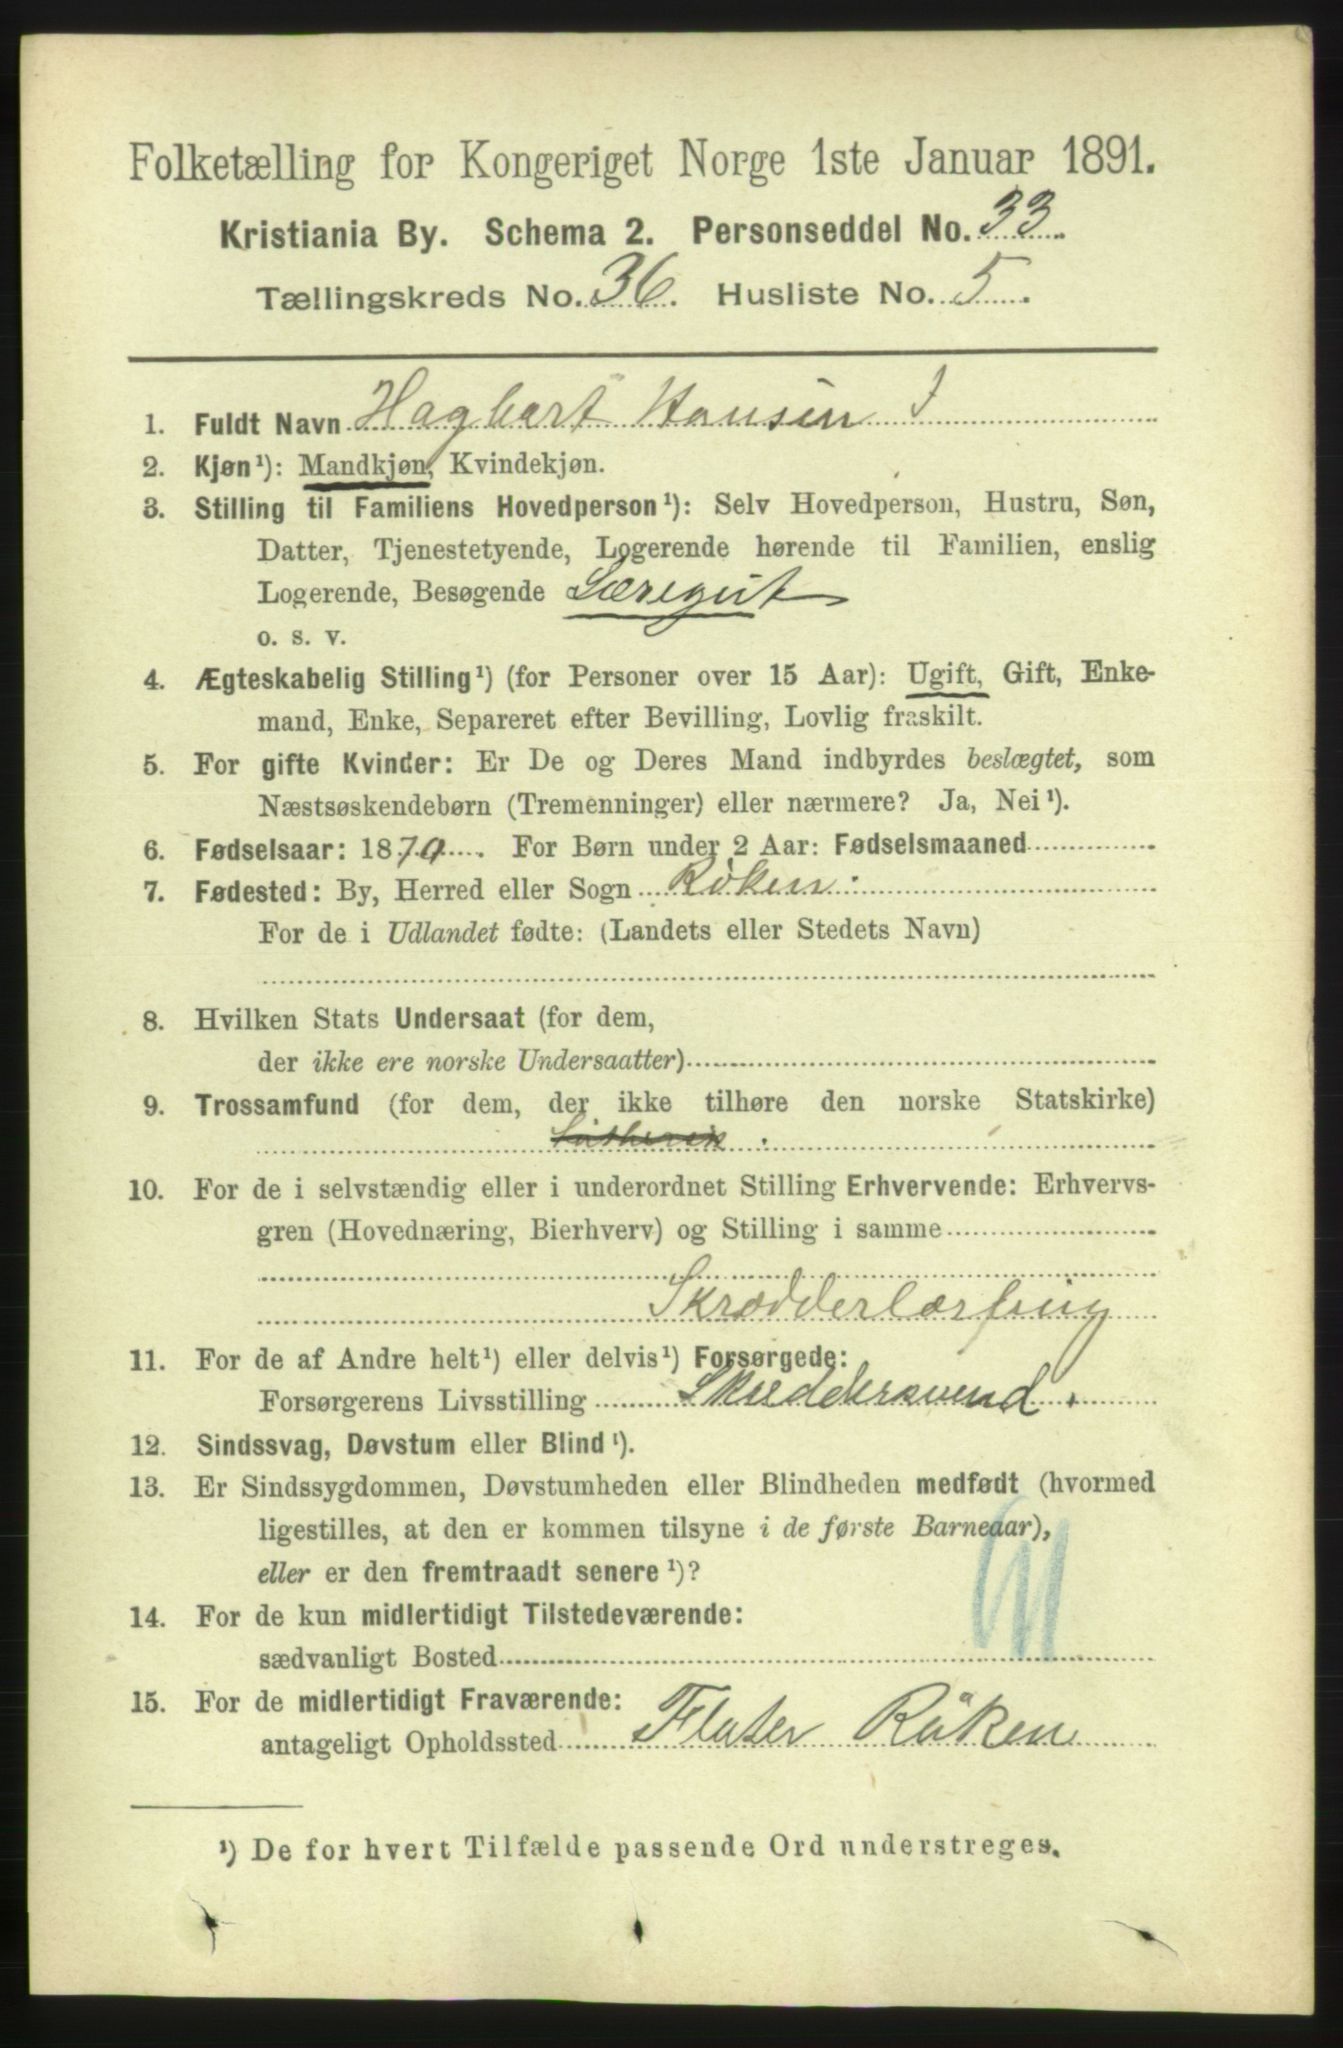 Folketælling for Kongeriget Norge 1ste Januar 1891.
Kristiania By. Schema 2. Personseddel No. 33.
Tællingskreds No. 36. Husliste No. 5.
1. Fuldt Navn Hagbart Hansen
2. Kjøn¹): Mandkjøn, Kvindekjøn.
3. Stilling til Familiens Hovedperson¹): Selv Hovedperson, Hustru, Søn,
Datter, Tjenestetyende, Logerende hørende til Familien, enslig
Logerende, Besøgende Læregut
o. s. v.
4. Ægteskabelig Stilling¹) (for Personer over 15 Aar): Ugift, Gift, Enke-
mand, Enke, Separeret efter Bevilling, Lovlig fraskilt.
5. For gifte Kvinder: Er De og Deres Mand indbyrdes beslægtet, som
Næstsøskendebørn (Tremenninger) eller nærmere? Ja, Nei¹).
6. Fødselsaar: 1870. For Børn under 2 Aar: Fødselsmaaned
7. Fødested: By, Herred eller Sogn Røken.
For de i Udlandet fødte: (Landets eller Stedets Navn)
8. Hvilken Stats Undersaat (for dem,
der ikke ere norske Undersaatter)
9. Trossamfund (for dem, der ikke tilhøre den norske Statskirke)
Luthersk.
10. For de i selvstændig eller i underordnet Stilling Erhvervende: Erhvervs-
gren (Hovednæring, Bierhverv) og Stilling i samme
Skrædderlærling
11. For de af Andre helt¹) eller delvis¹) Forsørgede:
Forsørgerens Livsstilling Skreddersvend.
12. Sindssvag, Døvstum eller Blind¹).
13. Er Sindssygdommen, Døvstumheden eller Blindheden medfødt (hvormed
ligestilles, at den er kommen tilsyne i de første Barneaar),
eller er den fremtraadt senere¹)?
14. For de kun midlertidigt Tilstedeværende:
sædvanligt Bosted
15. For de midlertidigt Fraværende:
antageligt Opholdssted Røken
¹) De for hvert Tilfælde passende Ord understreges.